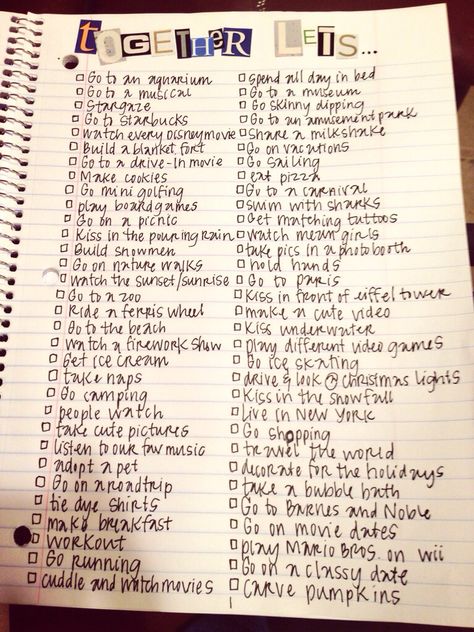 TOGETHER LETS...
Go to an aquarium
Go to a musical
Stargaze
Go to Starbucks
Watch every Disney movie
Build a blanket fort
Go to a drive-in movie
Make cookies
Go mini golfing
play boardgames
Go on a picnic
Kiss in the pouring rain
Build snowmen
Go on nature walks
watch the sunset/sunrise
Go to a zoo
Ride a ferris wheel
Go to the beach
watch a firework show
Get ice cream
take naps
Go camping
people watch
take cute pictures
listen to our fav music
adopt a pet
Go on a roadtrip
tie dye shirts
make breakfast
workout
Go running
cuddle and watch movies
spend all day in bed
Go to a museum
Go skinny dipping
Go to an amusement park
share a milkshake
Go on vacations
Go sailing
eat pizza
Go to a carnival
swim with sharks
Get matching tattoos
watch mean girls
take pics in a photobooth
hold hands
Go to paris
Kiss in front of eiffel tower
make a cute video
Kiss underwater
play different video games
Go ice skating
drive & look @ Christmas lights
Kiss in the snowfall
live in New York
Go shopping
travel the world
decorate for the holidays
take a bubble bath
Go to Barnes and Noble
Go on movie dates
play Mario Bros. on wii
Go on a classy date
carve pumpkins